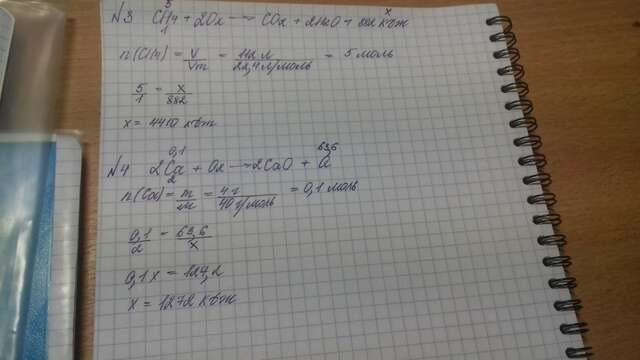 x
№3 CH4 + 2O2 → CO2 + 2H2O + 882 кДж
1
n(CH4) = V/Vm = 112 л/22,4 л/моль = 5 моль
5/1 = x/882
x = 4410 кДж
0,1 63,6
№4 2Ca + O2 → 2CaO + Q
2
n(Ca) = m/M = 4 г/40 г/моль = 0,1 моль
0,1/2 = 63,6/x
0,1x = 127,2
x = 1272 кДж